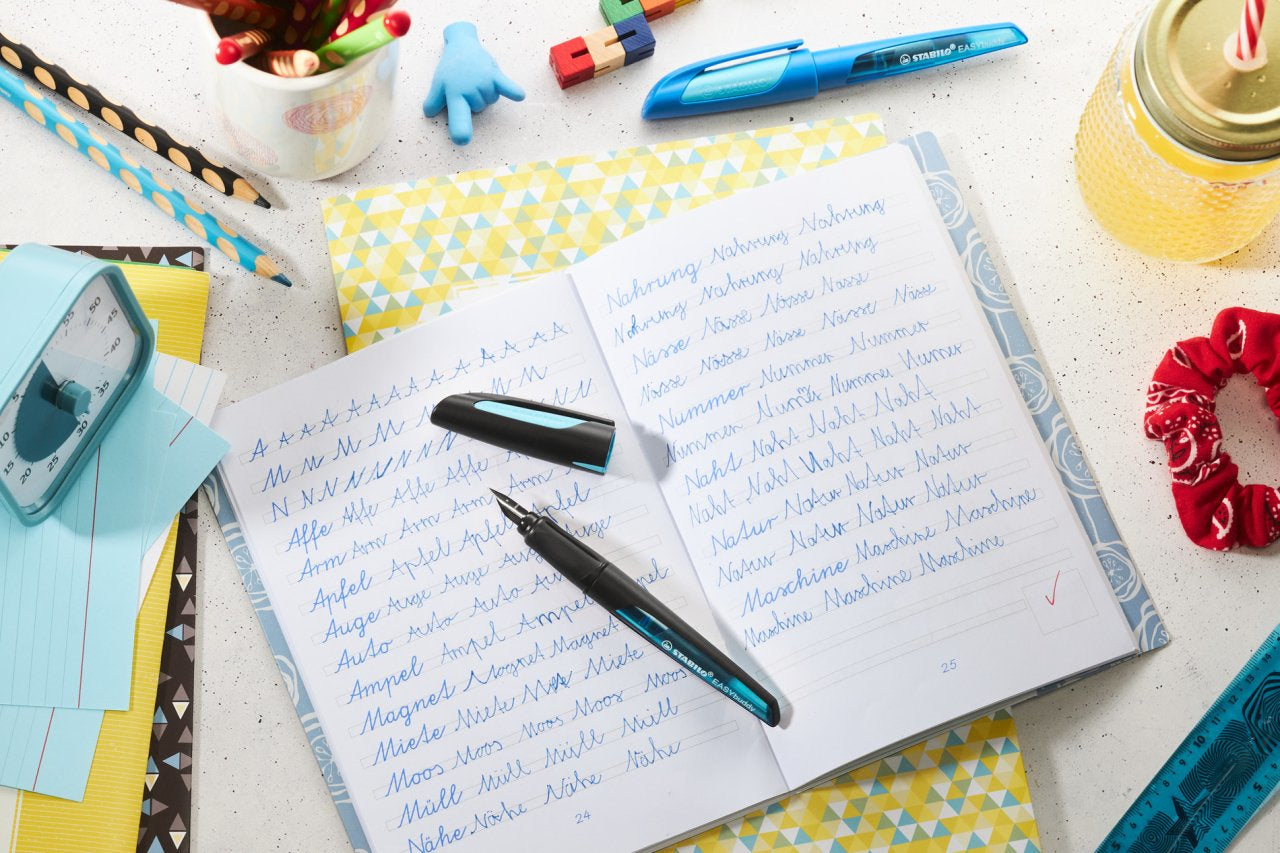 STABILO EASYbuddy
A A A A A A A A A A A A
M M M M M M
N N N N N N N
Affe Affe Affe Affe
Arm Arm Arm Arm Arm
Apfel Apfel Apfel Apfel
Auge Auge Auge Auge Auge
Auto Auto Auto
Ampel Ampel Ampel
Magnet Magnet Magnet
Miete Miete Miete Miete
Moos Moos Moos Moos
Müll Müll Müll
Nähe Nähe Nähe Nähe
24
STABILO EASYbuddy
Nahrung Nahrung Nahrung
Nahrung Nahrung Nahrung
Nässe Nässe Nässe Nässe
Nässe Nässe Nässe Nässe Nässe
Nummer Nummer Nummer
Nummer Nummer Numer
Naht Naht Naht Naht
Naht Naht Naht Naht Naht
Natur Natur Natur Natur
Natur Natur Natur Natur
Maschine Maschine Maschine
Maschine Maschine Maschine
25
55 50 45 40 35 30 25 20 15 10